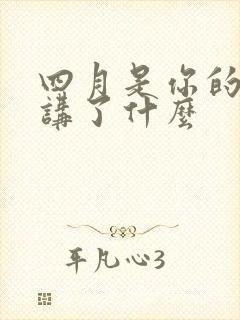 四月是你的
講了什麼
平凡心3